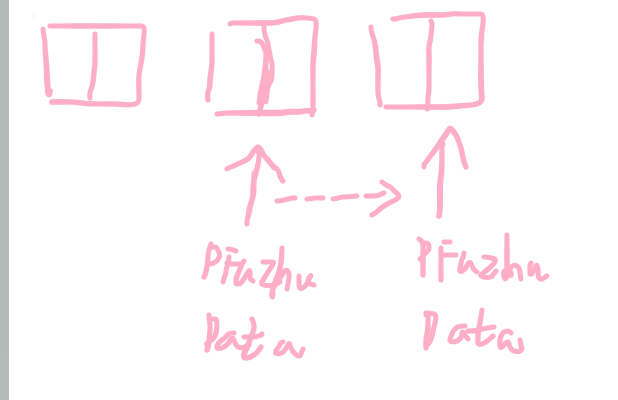 Pfuzhu
Data
Pfuzhu
Data